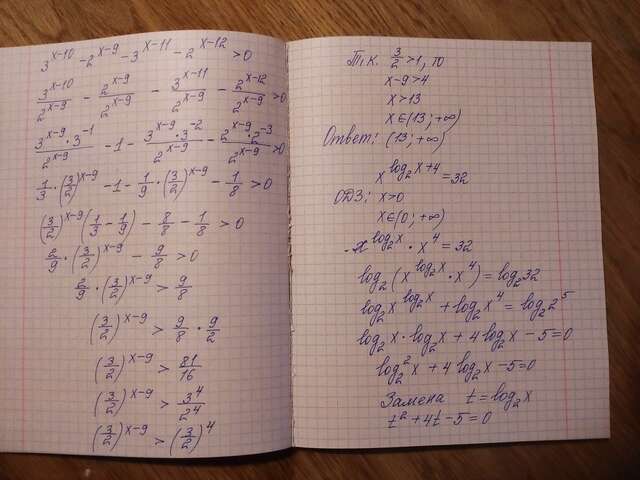 3^(x-10) - 2^(x-9) - 3^(x-11) - 2^(x-12) > 0
3^(x-10)/2^(x-9) - 2^(x-9)/2^(x-9) - 3^(x-11)/2^(x-9) - 2^(x-12)/2^(x-9) > 0
3^(x-9)·3^(-1)/2^(x-9) - 1 - 3^(x-9)·3^(-2)/2^(x-9) - 2^(x-9)·2^(-3)/2^(x-9) > 0
1/3·(3/2)^(x-9) - 1 - 1/9·(3/2)^(x-9) - 1/8 > 0
(3/2)^(x-9) (1/3 - 1/9) - 8/8 - 1/8 > 0
2/9·(3/2)^(x-9) - 9/8 > 0
2/9·(3/2)^(x-9) > 9/8
(3/2)^(x-9) > 9/8·9/2
(3/2)^(x-9) > 81/16
(3/2)^(x-9) > 3^4/2^4
(3/2)^(x-9) > (3/2)^4
Т.к. 3/2 > 1, то
x-9 > 4
x > 13
x∈(13; +∞)
Ответ: (13; +∞)
x^(log₂x+4) = 32
ОДЗ: x > 0
x∈(0; +∞)
x^(log₂x) · x^4 = 32
log₂(x^(log₂x) · x^4) = log₂32
log₂x^(log₂x) + log₂x^4 = log₂2^5
log₂x · log₂x + 4log₂x - 5 = 0
log₂²x + 4log₂x - 5 = 0
Замена t = log₂x
t² + 4t - 5 = 0